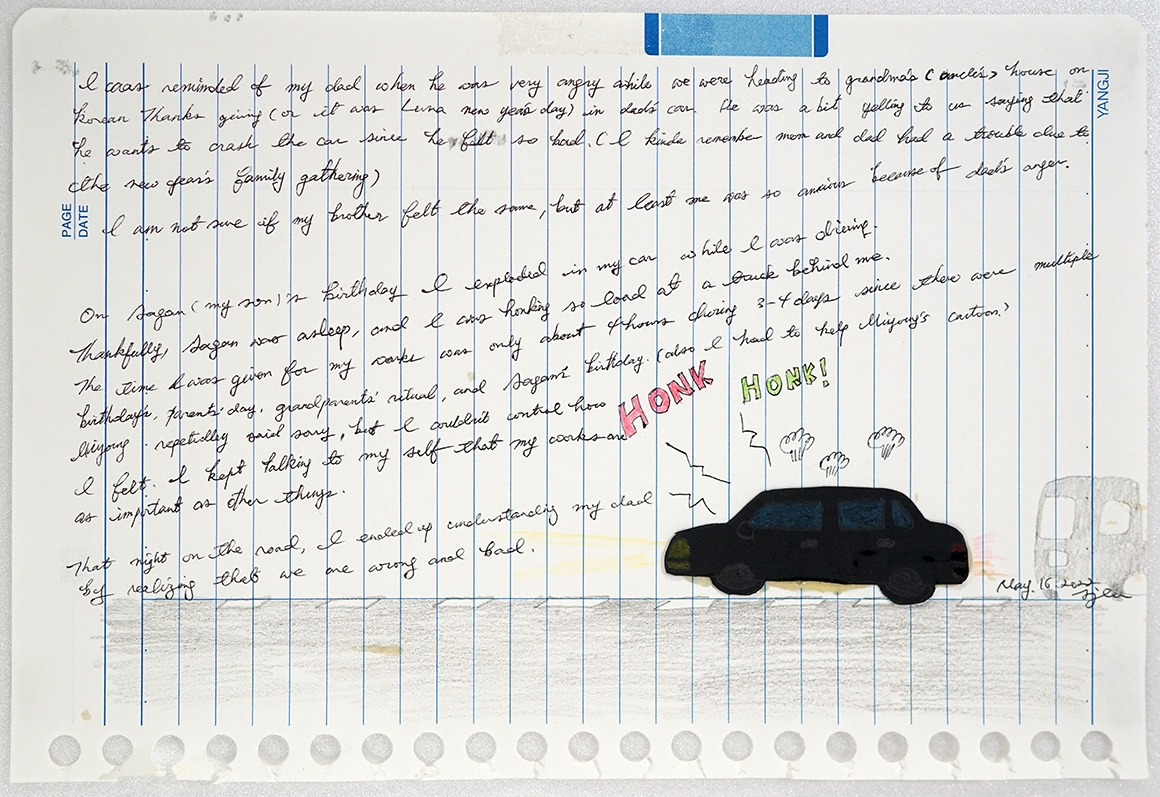 I was reminded of my dad when he was very angry while we were heading to grandma's (uncle's) house on
Korean Thanks giving (or it was Luna new year's day) in dad's car. He was a bit yelling to us saying that
he wants to crash the car since he felt so bad. (I kinda remember mom and dad had a trouble due to
(the new year's family gathering)
I am not sure if my brother felt the same, but at least me was so anxious because of dad's anger.
On Sagan (my son)'s birthday I exploded in my car while I was driving.
Thankfully, Sagan was asleep, and I was honking so load at a truck behind me.
The time I was given for my works was only about 4 hours during 3-4 days since there were multiple
birthdays, parents' day, grandparents' ritual, and Sagan's birthday. (also I had to help Miyoung's cartoon.)
Miyoung repetidley said sorry, but I couldn't control how
I felt. I kept talking to my self that my works are
as important as other things.
That night on the road, I ended up understanding my dad
by realizing that we are wrong and bad.
HONK
HONK!
May. 16. 2022
PAGE
DATE
YANGJI